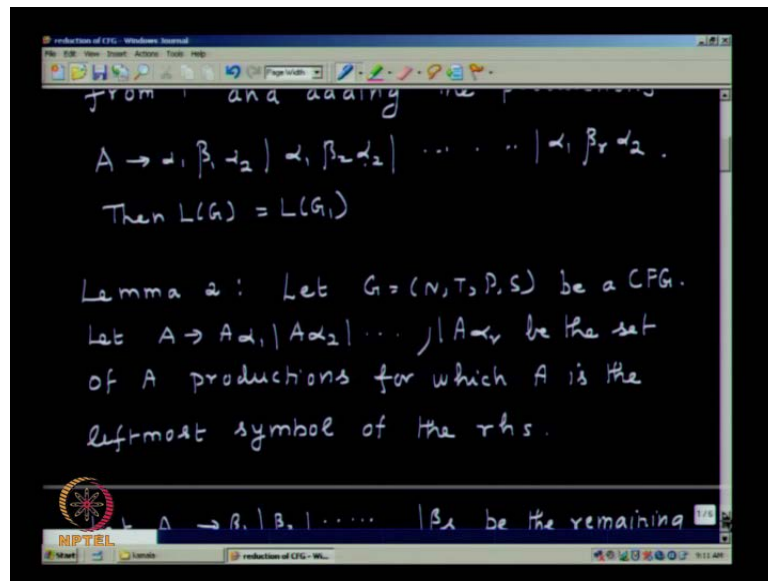 reduction of CFG - Windows Journal
File Edit View Insert Actions Tools Help
Page Width
from and adding the
A → α₁ β₁ α₂ | α₁ β₂ α₂ | ..... | α₁ βᵣ α₂ .
Then L(G) = L(G₁)
Lemma 2 : Let G = (N, T, P, S) be a CFG.
Let A → Aα₁ | Aα₂ | ... , | Aαᵣ be the set
of A productions for which A is the
leftmost symbol of the rhs.
Let A → β₁ | β₂ | ..... | βₛ be the remaining
1/6
NPTEL
Start kamala reduction of CFG - Wi... 9:11 AM